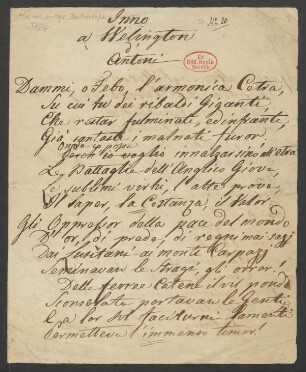 Inno
No. 10.
a Welington
d'
Antoni
Ex
Biblioth. Regia
Berolin.
Dammi, o Febo, l'armonica Cetra,
Su cui tu dei ribaldi Giganti,
Che restar fulminati, ed infranti,
Già cantasti i malnati furor
Onde
Perch'io voglio innalzar sino all'etra
Le Battaglie dell'Anglico Giove,
Le sublimi virtù, l'alte prove,
Il saper, la Costanza, il valor.
Gli Oppressor della pace del mondo
D'or, di prede, di regni mai sazj
Dai Lusitani ai monte Carpazj
Seminavan le stragi, gli orror!
Delle feroce Catene il vil pondo
Sconsolate portavan le Genti
E a lor sol taciturni lamenti
Permetteva l'immenso timor!